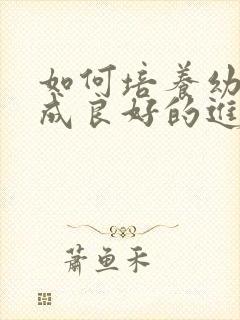 如何培养幼
成良好的进
萧鱼禾